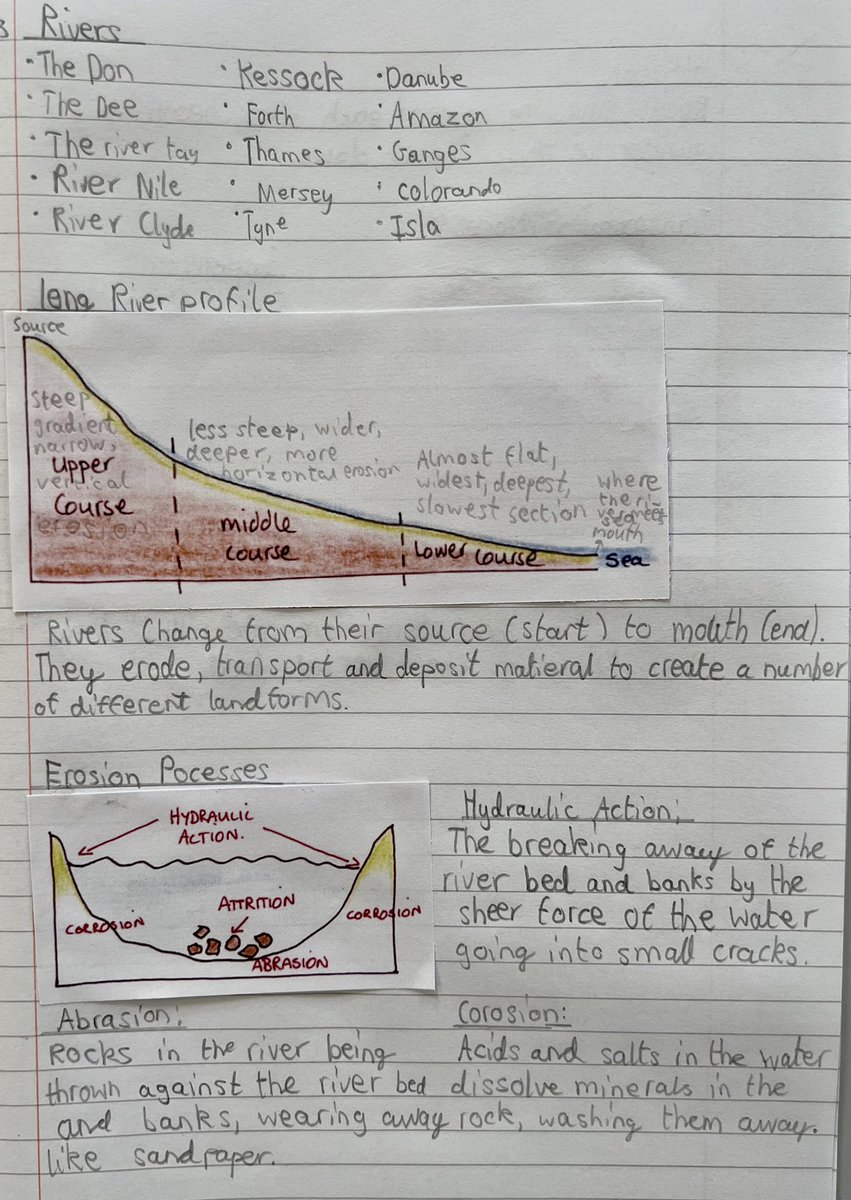 Rivers
• The Don
• The Dee
• The river tay
• River Nile
• River Clyde
• Kessock
• Forth
• Thames
• Mersey
• Tyne
• Danube
• Amazon
• Ganges
• colorando
• Isla
long River profile
Source
steep
gradient
narrow,
vertical
erosion
upper
Course
less steep, wider,
deeper, more
horizontal erosion
middle
course
Almost flat,
widest, deepest,
slowest section
Lower course
where
the ri-
ver meets
sea
mouth
Sea
Rivers Change from their source (start) to mouth (end).
They erode, transport and deposit matieral to create a number
of different landforms.
Erosion Pocesses
HYDRAULIC
ACTION.
ATTRITION
CORROSION
CORROSION
ABRASION
Hydraulic Action:
The breaking away of the
river bed and banks by the
sheer force of the water
going into small cracks.
Abrasion:
Rocks in the river being
thrown against the river bed
and banks, wearing away
like sandpaper.
Corosion:
Acids and salts in the water
dissolve minerals in the
rock, washing them away.